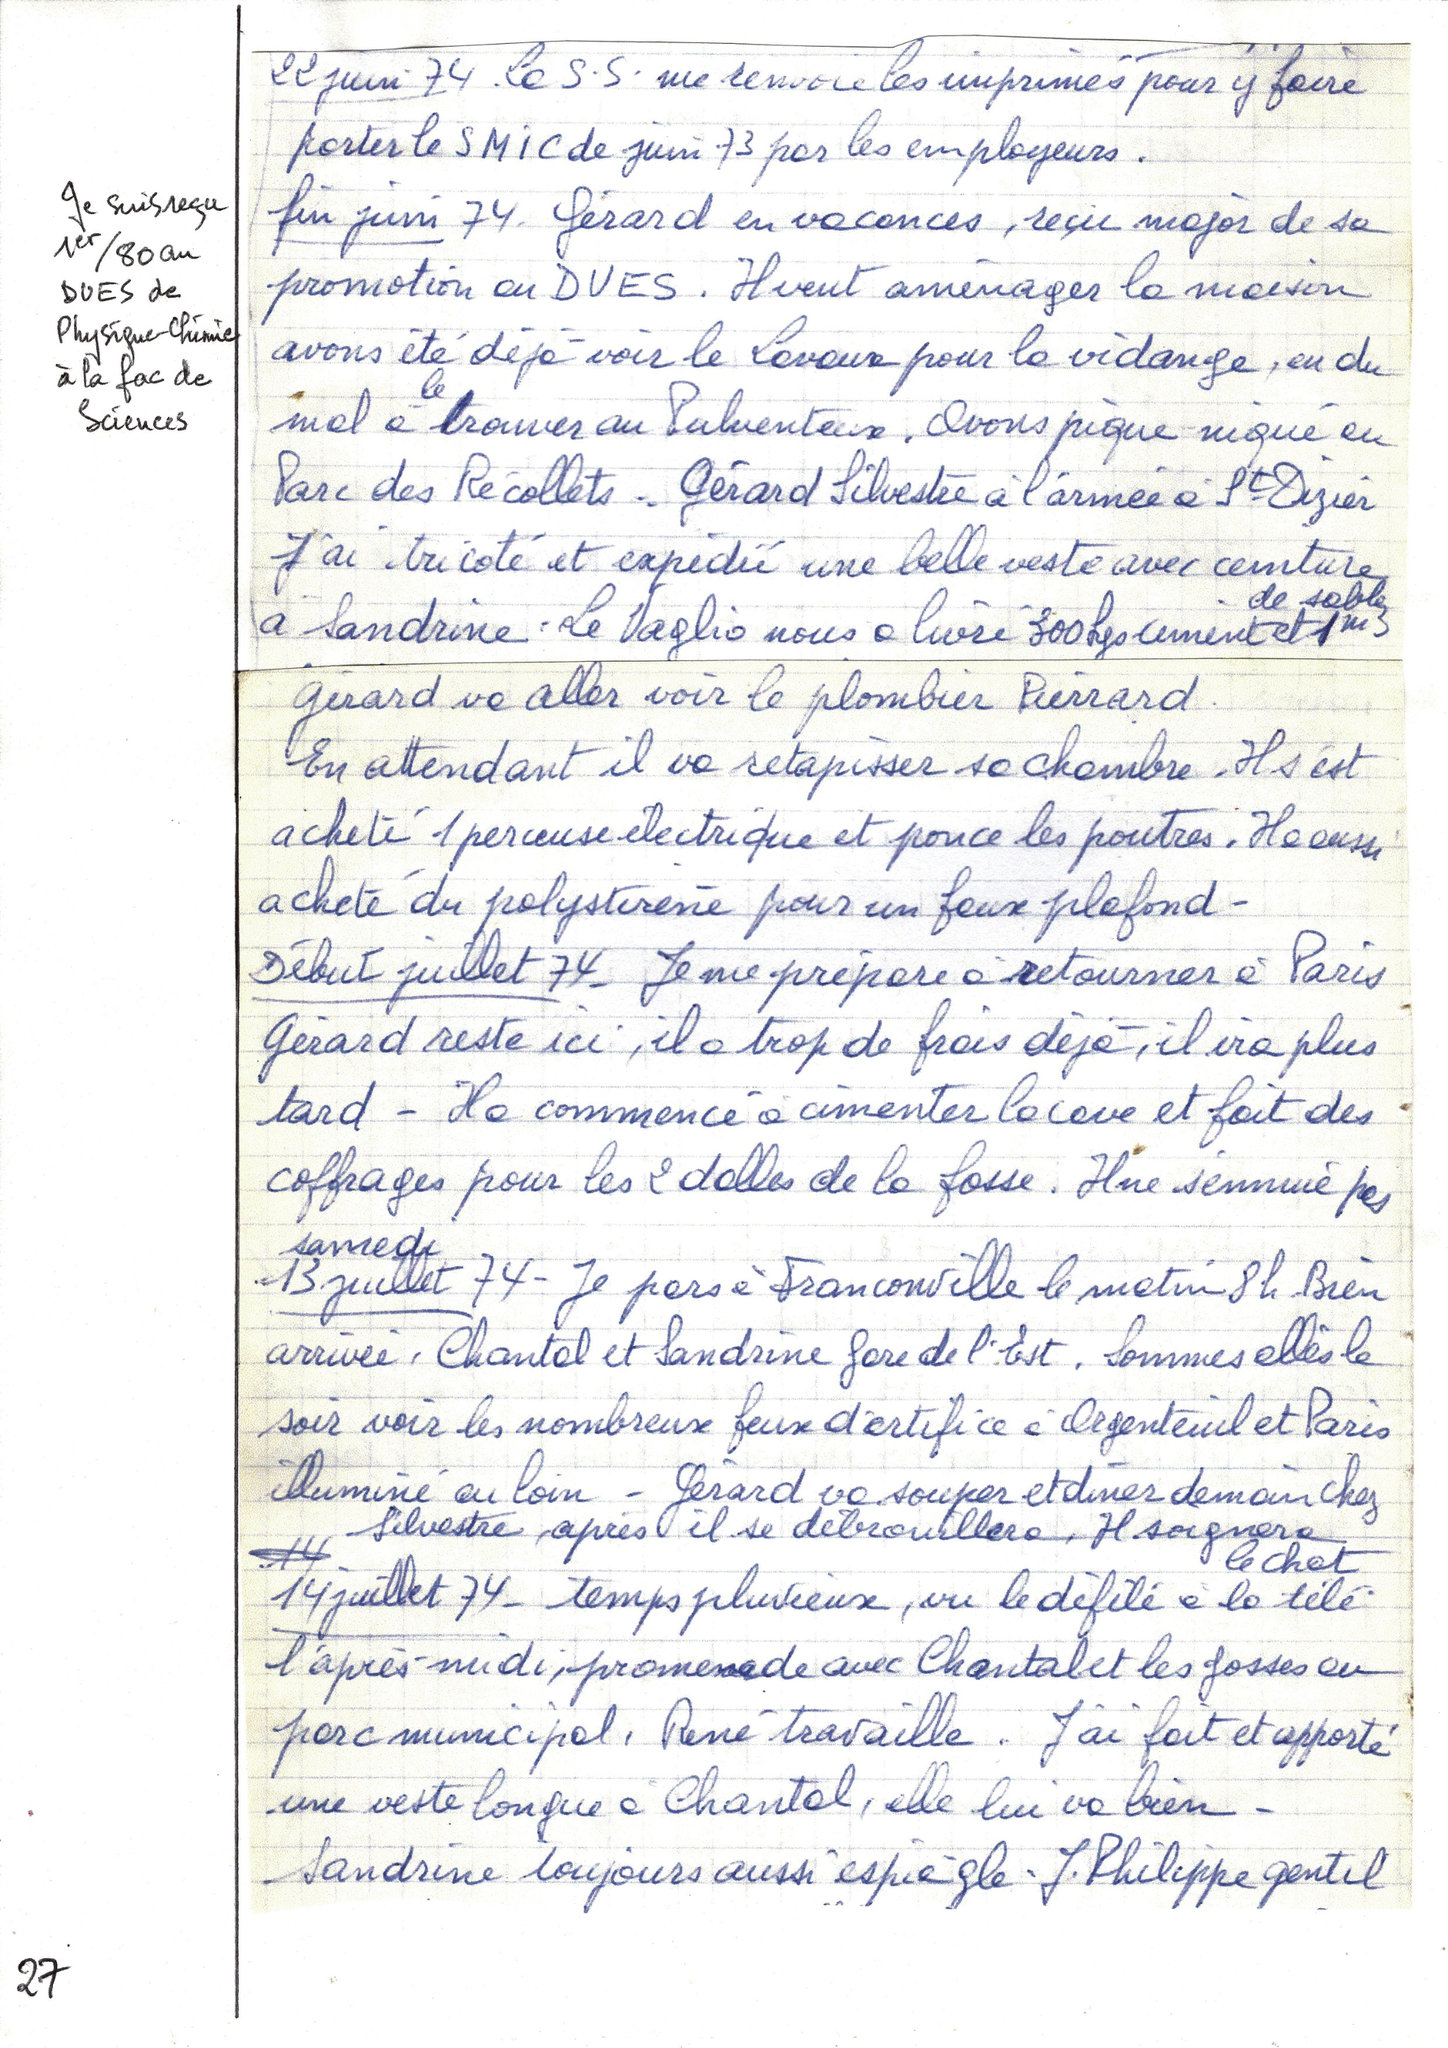 22 juin 74. La S.S. me renvoie les imprimés pour y faire
porter le SMIC de juin 73 par les employeurs.
Je suis reçu
1er/80 au
DUES de
Physique-Chimie
à la fac de
Sciences
fin juin 74. Gérard en vacances, reçu major de sa
promotion au DUES. Il veut aménager la maison
avons été déjà voir le Lavaux pour la vidange, eu du
mal à le trouver au Pulventeux. Avons pique-niqué au
Parc des Récollets - Gérard Silvestre à l'armée à St-Dizier
J'ai tricoté et expédié une belle veste avec ceinture
à Sandrine. Le Vaglio nous a livré 300 kgs ciment et 1 m3
de sable
Gérard va aller voir le plombier Pierrard.
En attendant il va retapisser sa chambre. Il s'est
acheté 1 perceuse électrique et ponce les poutres. Il a aussi
acheté du polystirène pour un faux plafond -
Début juillet 74 - Je me prépare à retourner à Paris
Gérard reste ici, il a trop de frais déjà, il ira plus
tard - Il a commencé à cimenter la cave et fait des
coffrages pour les 2 dalles de la fosse. Il ne s'ennuie pas
samedi
13 juillet 74 - Je pars à Franconville le matin 8 h. Bien
arrivée, Chantal et Sandrine Gare de l'Est. Sommes allés le
soir voir les nombreux feux d'artifice à Argenteuil et Paris
illuminé au loin - Gérard va souper et dîner demain chez
Silvestre, après il se débrouillera, Il soignera
le chat
14
14 juillet 74 - temps pluvieux, vu le défilé à la télé
l'après-midi, promenade avec Chantal et les gosses au
parc municipal, René travaille. J'ai fait et apporté
une veste longue à Chantal, elle lui va bien -
Sandrine toujours aussi espiègle - J. Philippe gentil
27